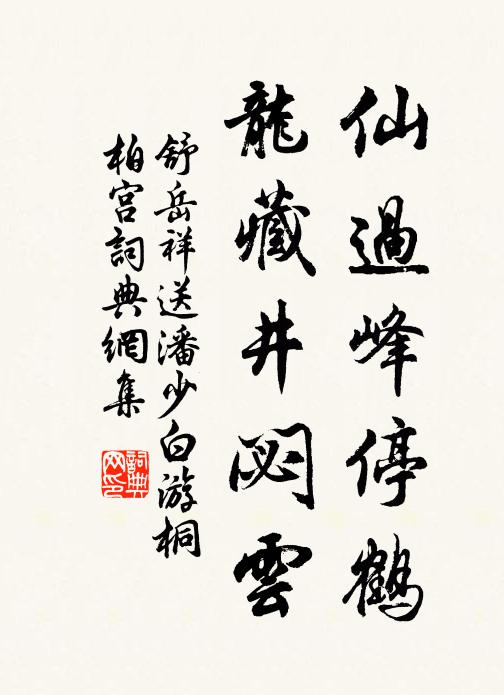 仙過峰停鶴
龍藏井閟雲
舒岳祥送潘少白游桐
柏宮詞典網集
詞典
网印